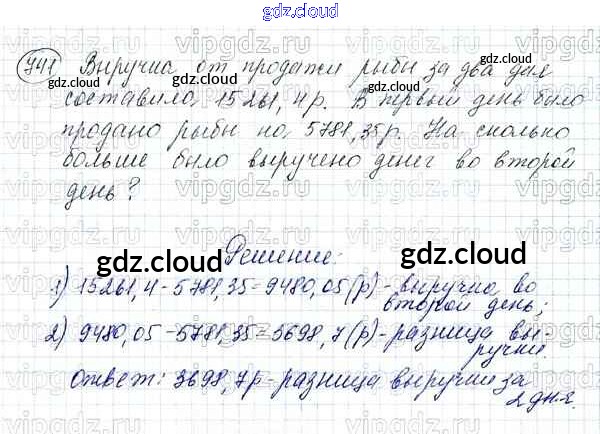 gdz.cloud
741 Выручка от продажи рыбы за два дня
составила 15261,4 р. В первый день было
продано рыбы на 5781,35 р. На сколько
больше было выручено денег во второй
день?
Решение:
1) 15261,4 - 5781,35 = 9480,05 (р) - выручка во
второй день;
2) 9480,05 - 5781,35 = 3698,7 (р) - разница вы-
ручки.
Ответ: 3698,7 р - разница выручки за
2 дня.